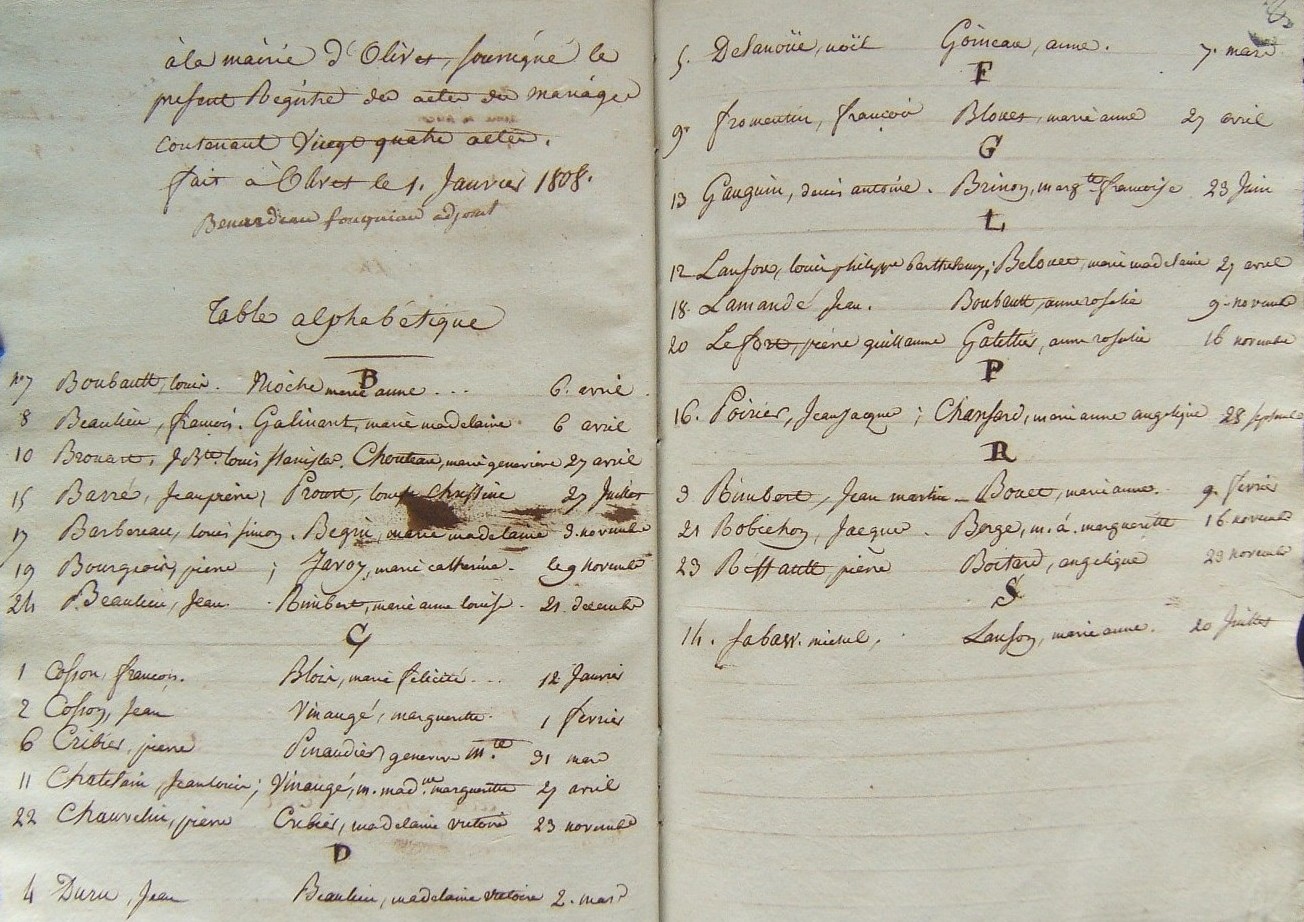 à la mairie d'Olivet, soussigné le
present Régistre des actes de mariage
contenant vingt quatre actes.
fait à Olivet le 1. Janvier 1808.
adjoint
Table alphabétique
B
n° 7 Boubault, louis. Mioche marie anne ... 6. avril
8 Beaulieu, françois. Galinant, marie madelaine 6 avril
10 Brouart, J. Bte. louis stanislas. Chouteau, marie genevieve 27 avril
15 Barré, Jean pierre; Proust, louise Christine 27 Juillet
17 Barbereau, louis simon. Begin, marie madelaine 3. novembre
19 Bourgeois, pierre ; Javoy, marie catherine. le 9 novembre
24 Beaulieu, Jean. Rimbert, marie anne louise. 21. decembre
C
1 Cosson, françois. Blois, marie félicité ... 12 Janvier
2 Cosson, Jean Vinaugé, marguerite. 1 fevrier
6 Cribier, pierre Pinaudier, genevieve m.te 31 mars
11 Chatelain, Jean louis; Vinaugé, m. mad.ne marguerite 27 avril
22 Chauvelin, pierre Cribier, madelaine victoire 23 novembre
D
4 Duru, Jean Beaulieu, madelaine victoire 2. mars
5. Delanoüe, noël Goineau, anne. 7. mars
F
9. fromentin, françois Blouet, marie anne 27 avril
G
13 Gauguin, denis antoine. Brinon, marg.te françoise 23 Juin
L
12 Lanson, louis philippe barthelemy; Belouet, marie madelaine 27 avril
18. Lamandé Jean. Boubault, anne rosalie 9. novembre
20 Lefort, pierre guillaume Gatellier, anne rosalie 16 novembre
P
16. Poirier, Jean Jacque ; Chansard, marie anne angelique 28 septembre
R
3 Rimbert, Jean martin. Bouet, marie anne. 9. fevrier
21 Robichon, Jacque. Berge, m. a. marguerite 16 novembre
23 Riffault pierre Boitard, angelique 23 novembre
S
14. Sabard. michel, Lanson, marie anne. 20 Juillet